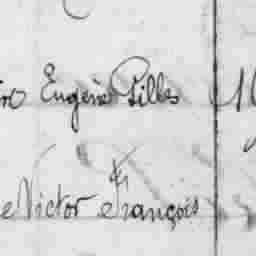 Eugène Gilles
Victor François